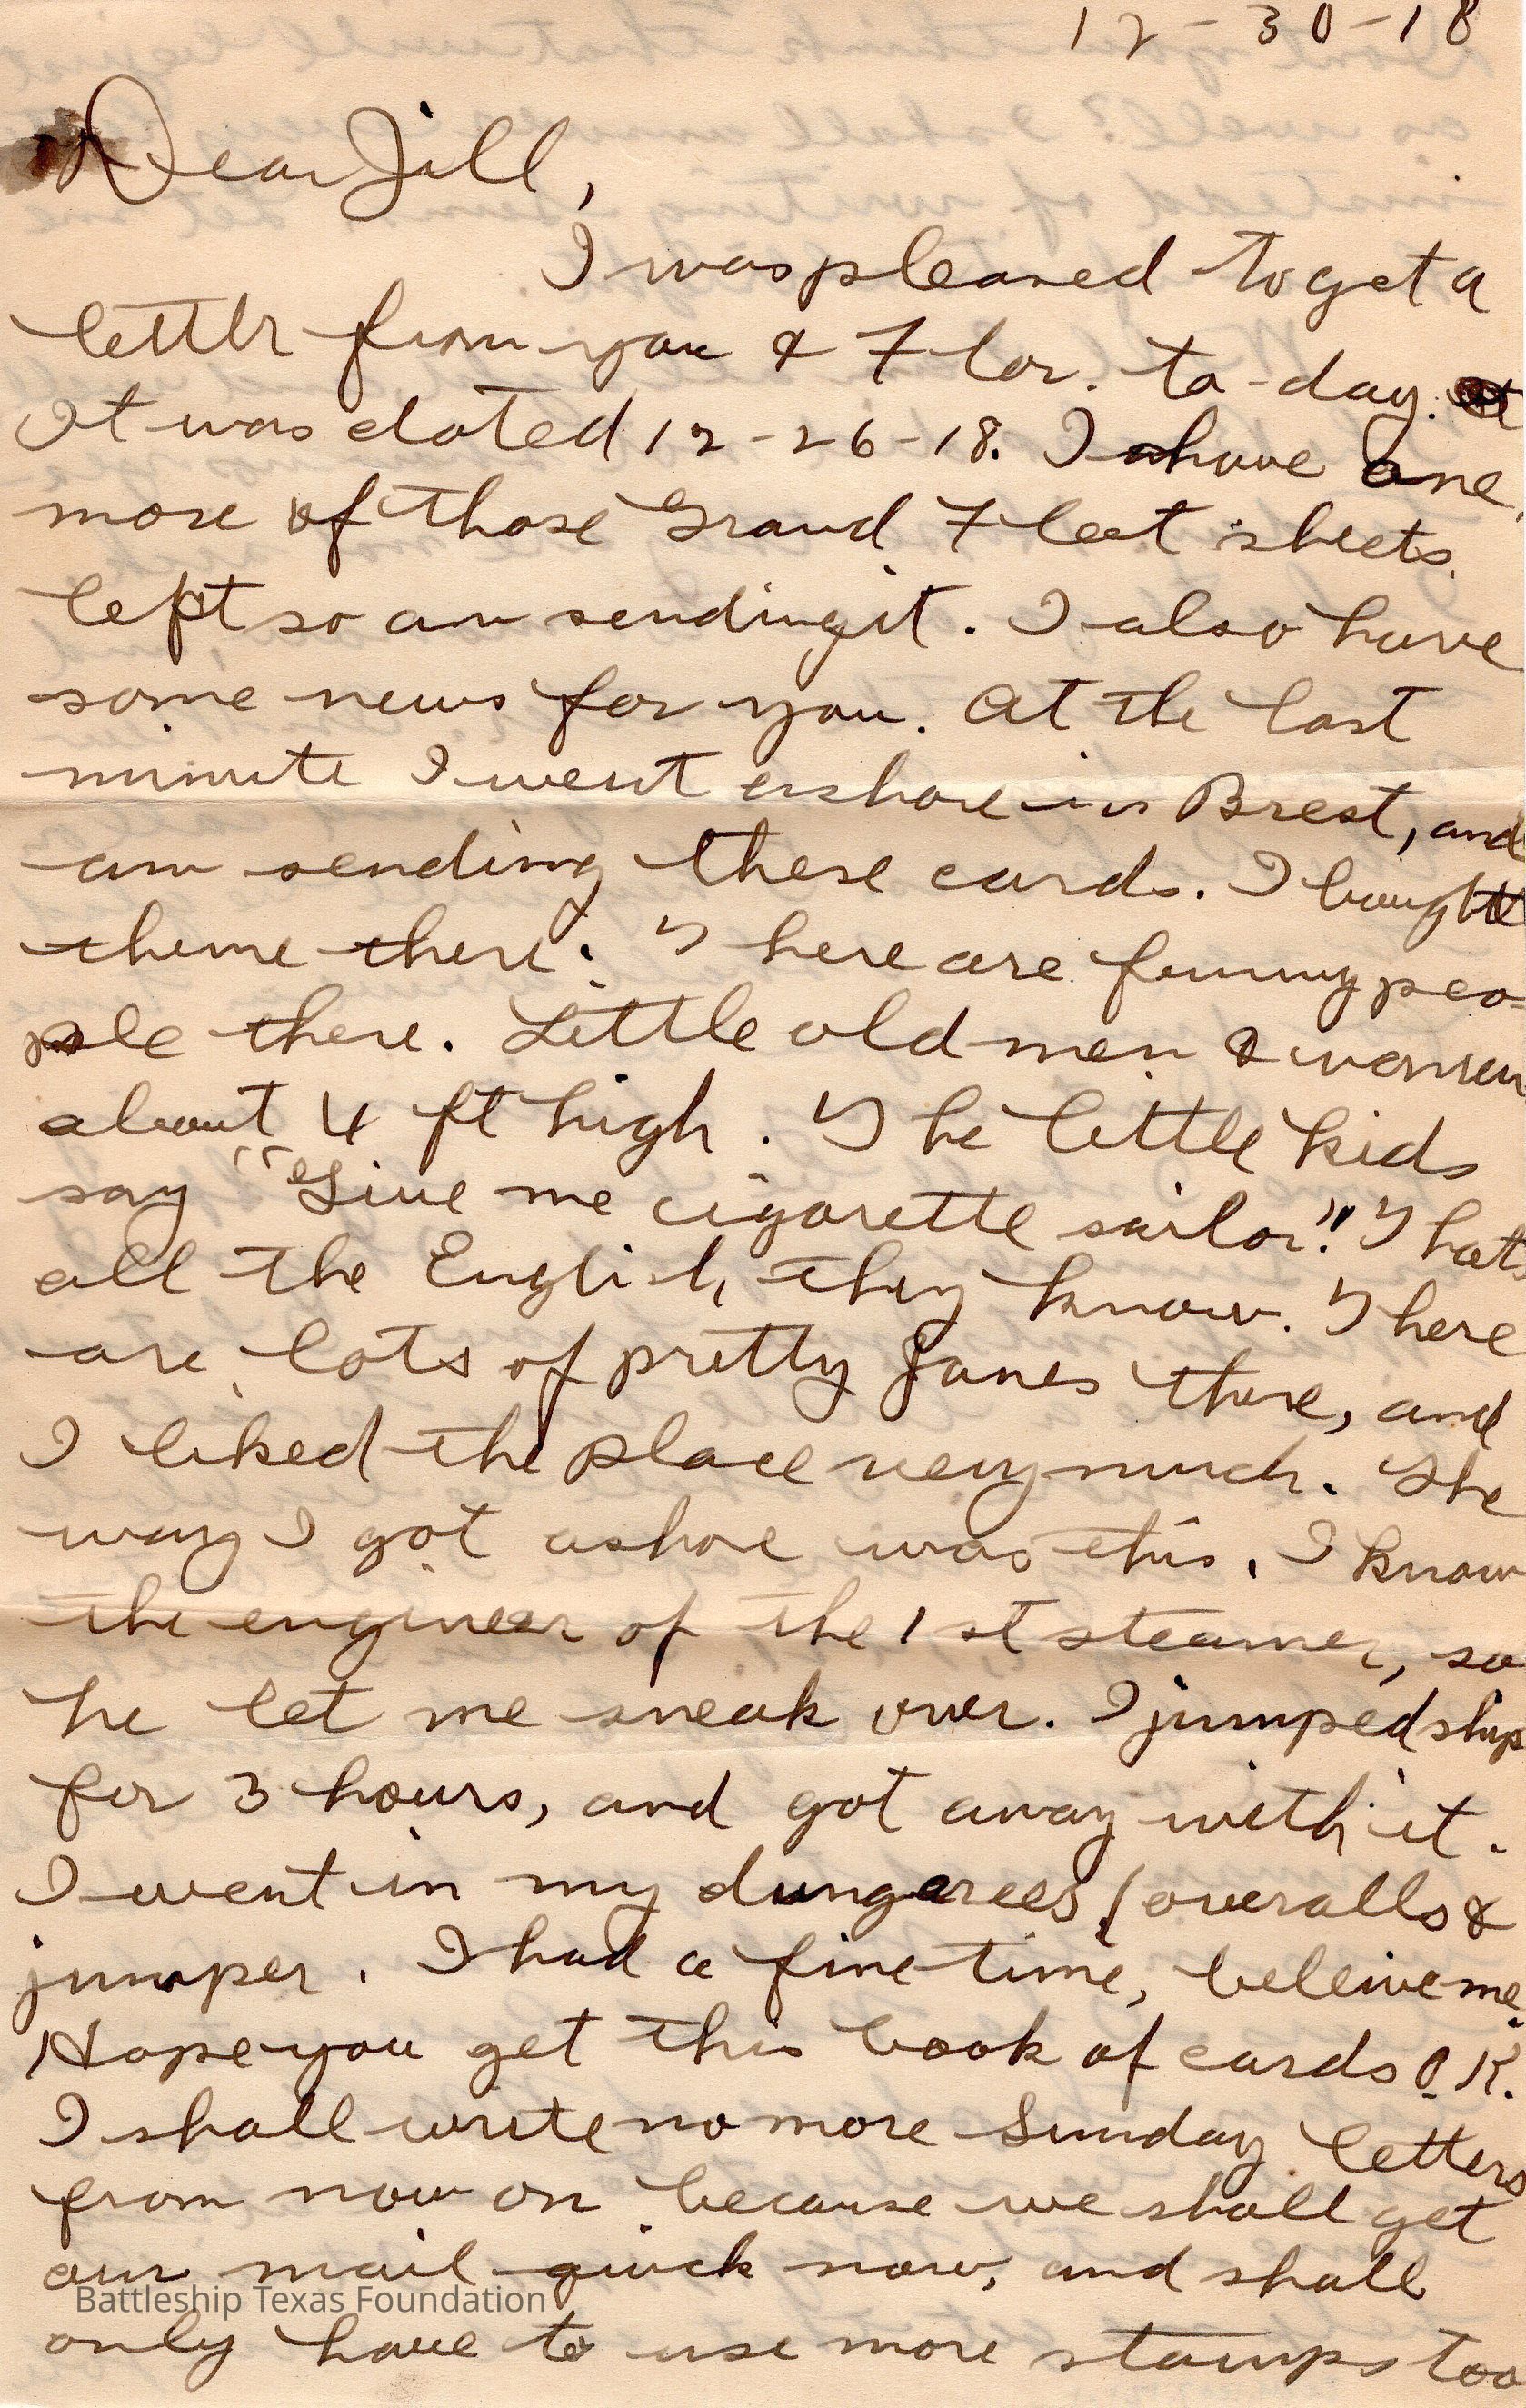 12-30-18
Dear Jill,
I was pleased to get a
letter from you & Flor. to-day.
It was dated 12-26-18. I have one
more of those Grand Fleet sheets
left so am sending it. I also have
some news for you. At the last
minute I went ashore in Brest, and
am sending these cards. I bought
theme there. There are funny peo-
ple there. Little old men & women
about 4 ft high. The little kids
say "Give me cigarette sailor". Thats
all the English they know. There
are lots of pretty Janes there, and
I liked the place very much. The
way I got ashore was this. I know
the engineer of the 1st steamer, so
he let me sneak over. I jumped ship
for 3 hours, and got away with it.
I went in my dungarees (overalls &
jumper. I had a fine time, beleive me.
Hope you get this book of cards O.K.
I shall write no more Sunday letters
from now on because we shall get
our mail quick now, and shall
Battleship Texas Foundation
only have to use more stamps too